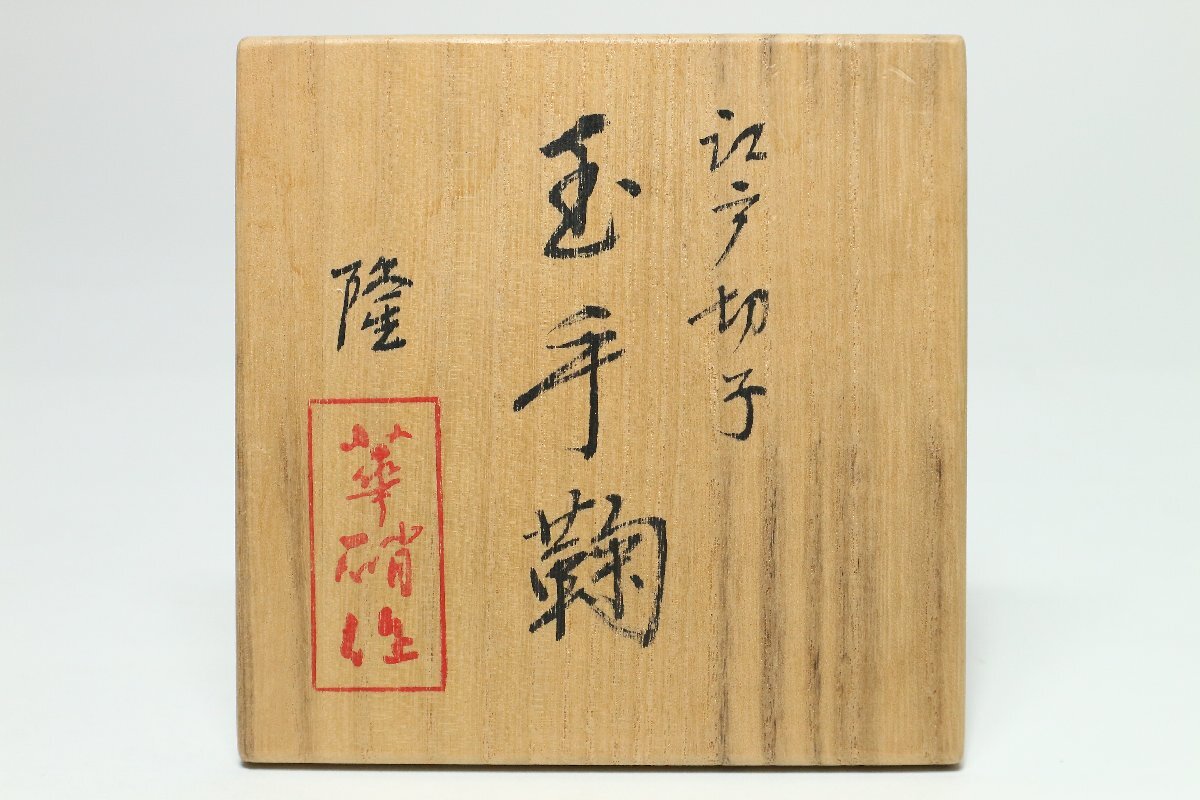 江戸切子
玉手鞠
隆
華硝作